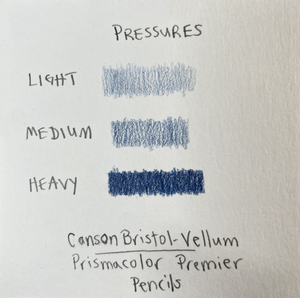 PRESSURES
LIGHT
MEDIUM
HEAVY
Canson Bristol-Vellum
Prismacolor Premier
Pencils